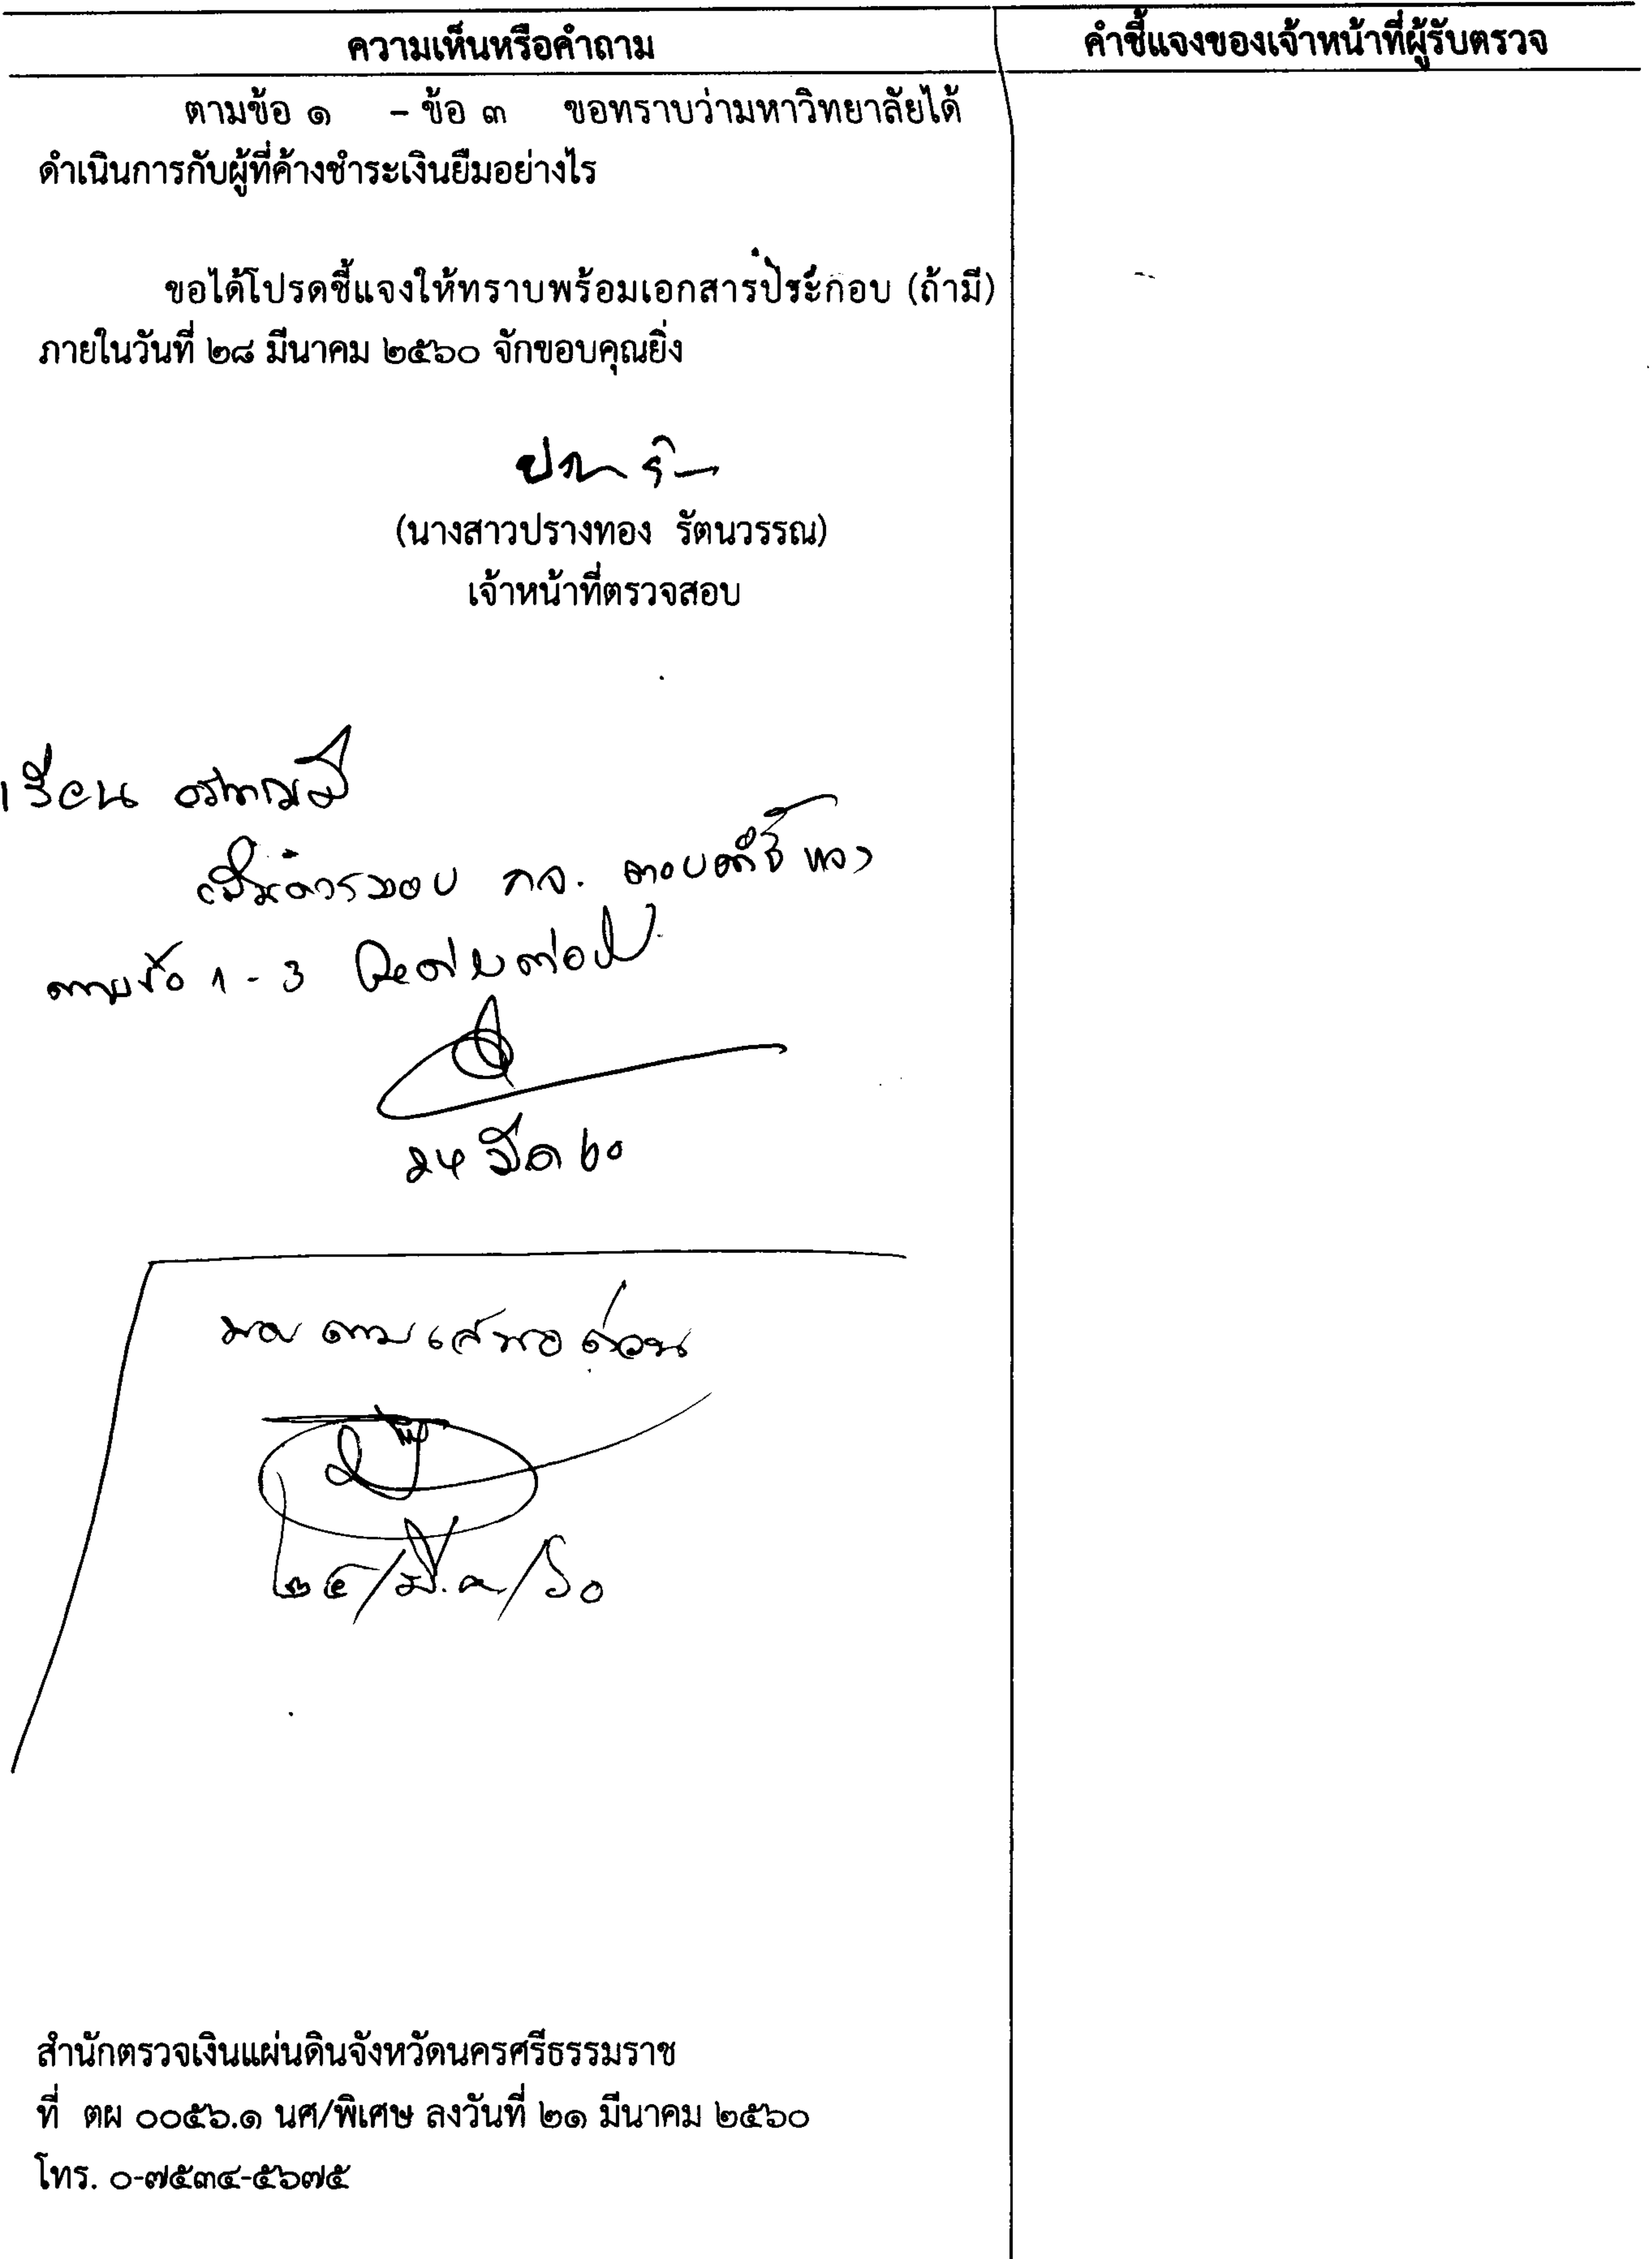 ความเห็นหรือคำถาม
คำชี้แจงของเจ้าหน้าที่ผู้รับตรวจ
ตามข้อ ๑ - ข้อ ๓ ขอทราบว่ามหาวิทยาลัยได้
ดำเนินการกับผู้ที่ค้างชำระเงินยืมอย่างไร
ขอได้โปรดชี้แจงให้ทราบพร้อมเอกสารประกอบ (ถ้ามี)
ภายในวันที่ ๒๘ มีนาคม ๒๕๖๐ จักขอบคุณยิ่ง
(นางสาวปรางทอง รัตนวรรณ)
เจ้าหน้าที่ตรวจสอบ
เรียน อธิการบดี
เห็นควรมอบ กค. ตอบคำชี้แจง
ตามข้อ 1 - 3 ต่อไป
24 มีค 60
มอบ ตามเสนอ ด่วน
๒๔/มี.ค/๖๐
สำนักตรวจเงินแผ่นดินจังหวัดนครศรีธรรมราช
ที่ ตผ ๐๐๕๖.๑ นศ/พิเศษ ลงวันที่ ๒๑ มีนาคม ๒๕๖๐
โทร. ๐-๗๕๓๔-๕๖๗๕